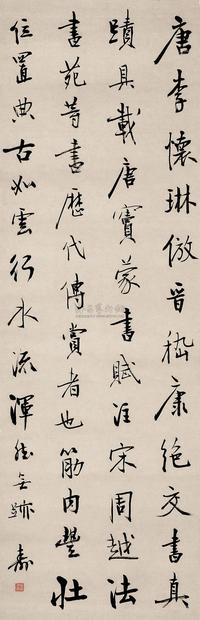 唐李懷琳倣晉嵇康絕交書真
蹟具載唐竇蒙書賦注宋周越法
書苑等書歷代傳賞者也筋肉豐壯
位置典古如雲行水流渾然無跡 壽